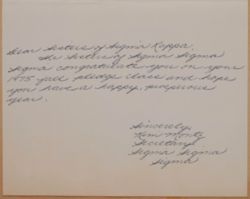 Dear Sisters of Sigma Kappa,
The Sisters of Sigma Sigma
Sigma congratulate you on your
1975 fall pledge class and hope
you have a happy, prosperous
year.
Sincerely,
Kim Montz
Secretary
Sigma Sigma
Sigma